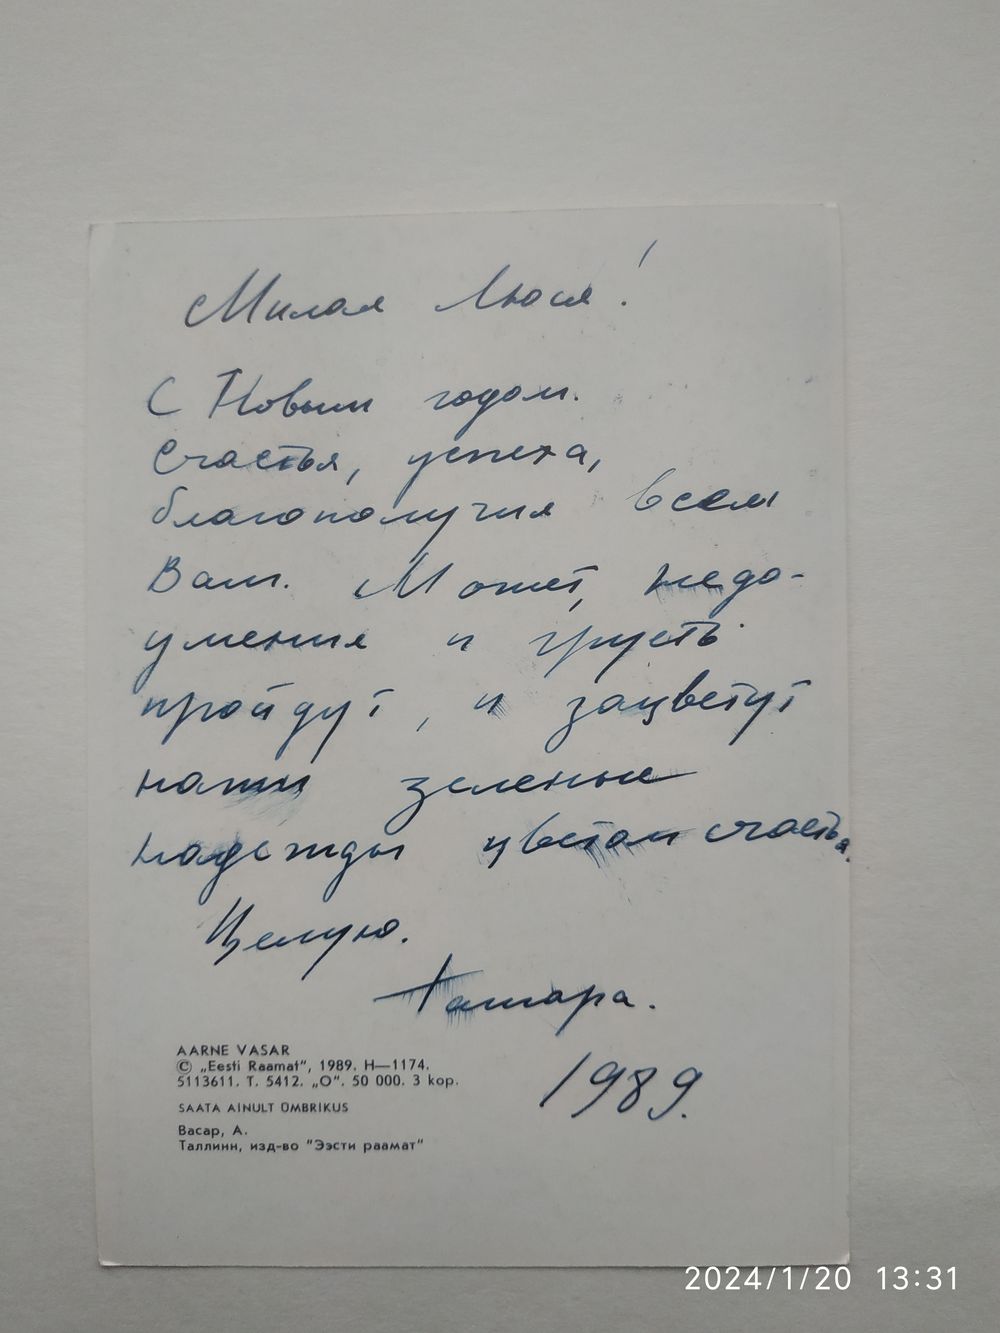 Милая Люся!
С Новым годом.
Счастья, успеха,
благополучия всем
Вам. Может, недо-
умения и грусть
пройдут, и зацветут
наши зеленые
надежды цветом счастья.
Целую.
Тамара.
1989.
AARNE VASAR
© „Eesti Raamat“, 1989. H—1174.
5113611. T. 5412. „O“. 50 000. 3 kop.
SAATA AINULT ÜMBRIKUS
Васар, А.
Таллинн, изд-во "Ээсти раамат"
2024/1/20 13:31